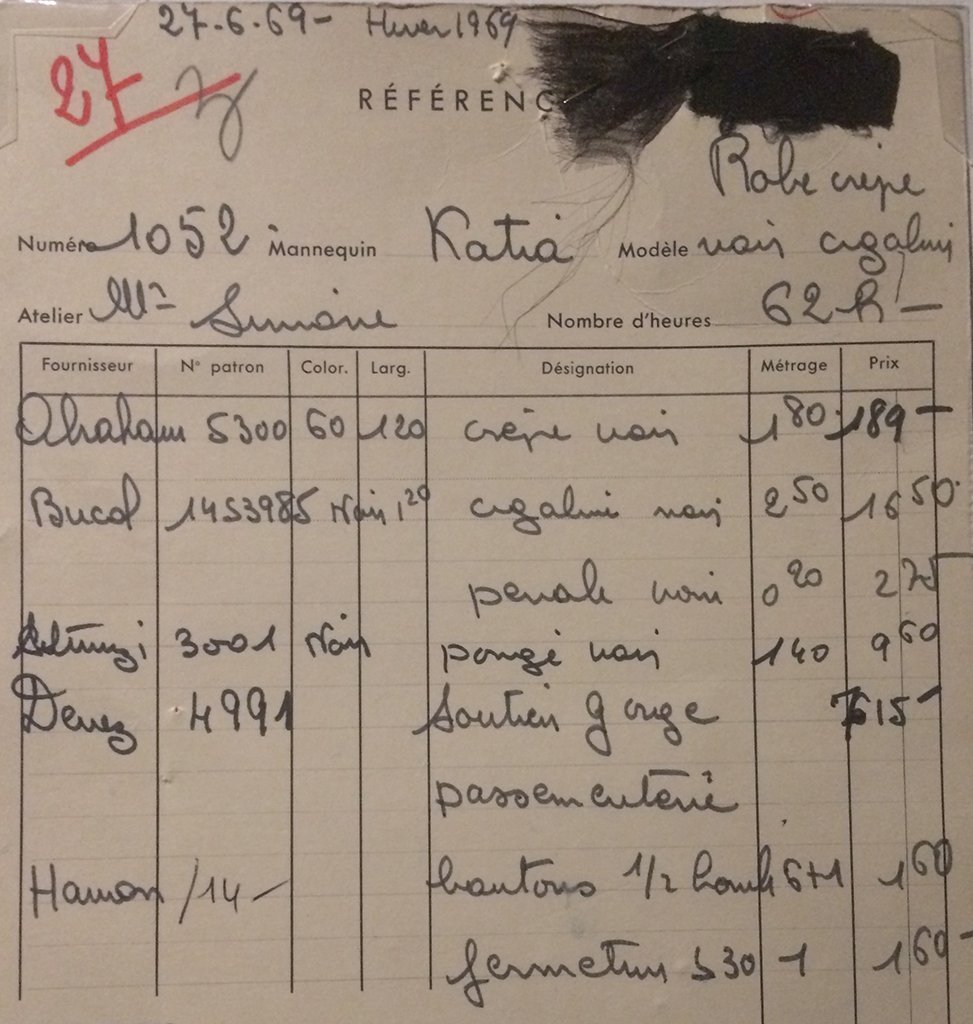 27.6.69- Hiver 1969
27
RÉFÉRENC
Robe crêpe
Numéro 1052 Mannequin Katia Modèle noir cigaline
Atelier Mme Simone Nombre d'heures 62 h -
Fournisseur N° patron Color. Larg. Désignation Métrage Prix
Abraham 5300 60 120 crêpe noir 1 80 189 -
Bucol 1453985 Noir 1 20 cigaline noir 2 50 16 50
noir 0 20
3001 Noir pongé noir 140 9 60
4991 Soutien gorge 615 -
passementerie
Hamon /14 - boutons 1/2 boule 6+1 1 60
fermeture 530 1 1 60 -